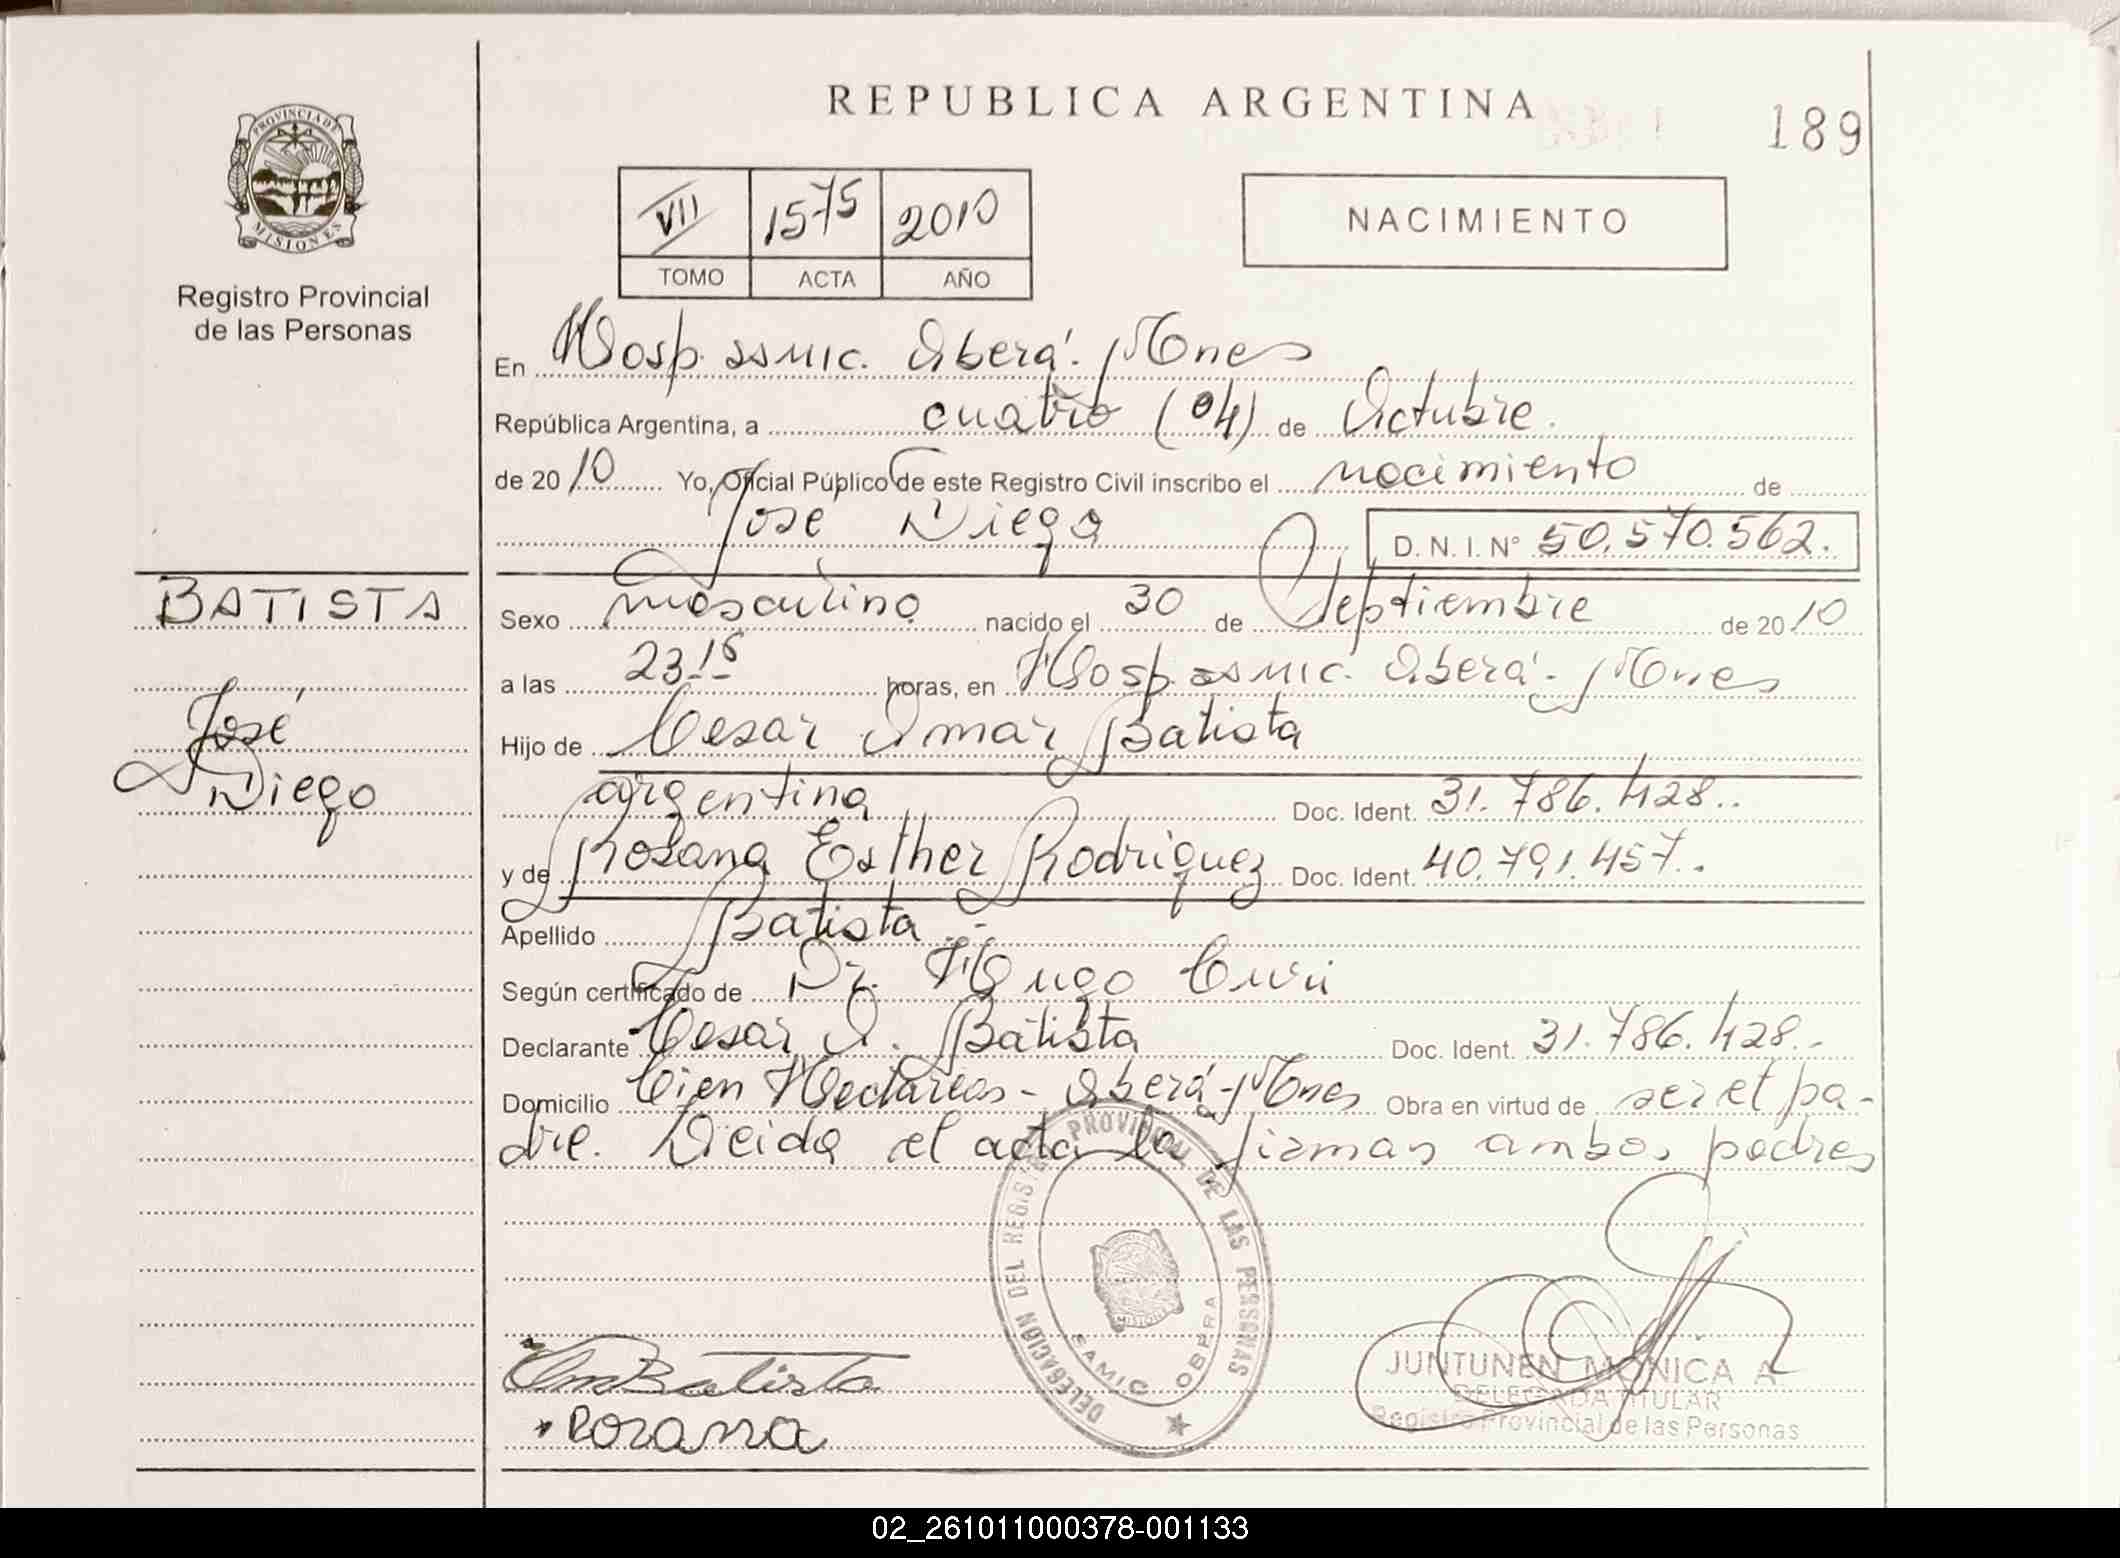 REPUBLICA ARGENTINA
189
PROVINCIA DE
MISIONES
Registro Provincial
de las Personas
VII 1575 2010
TOMO ACTA AÑO
NACIMIENTO
En Hosp. ssmic. Oberá. Mnes
República Argentina, a cuatro (04) de Octubre.
de 2010 Yo, Oficial Público de este Registro Civil inscribo el nacimiento de
José Diego D. N. I. N° 50.570.562.
BATISTA
José
Diego
Sexo masculino nacido el 30 de Septiembre de 2010
a las 23 15 horas, en Hosp. ssmic. Oberá - Mnes
Hijo de Cesar Omar Batista
argentina Doc. Ident. 31.786.428..
y de Rosana Esther Rodriguez Doc. Ident. 40.791.457..
Apellido Batista.-
Según certificado de Dr. Hugo
Declarante Cesar O. Batista Doc. Ident. 31.786.428.-
Domicilio Cien Hectareas - Oberá - Mnes Obra en virtud de ser el pa-
dre. Leida el acta la firman ambos padres
DELEGACION DEL REGISTRO PROVINCIAL DE LAS PERSONAS
MISIONES
SAMIC OBERA
Batista
Rosana
JUNTUNEN MONICA A.
DELEGADA TITULAR
Registro Provincial de las Personas
02_261011000378-001133